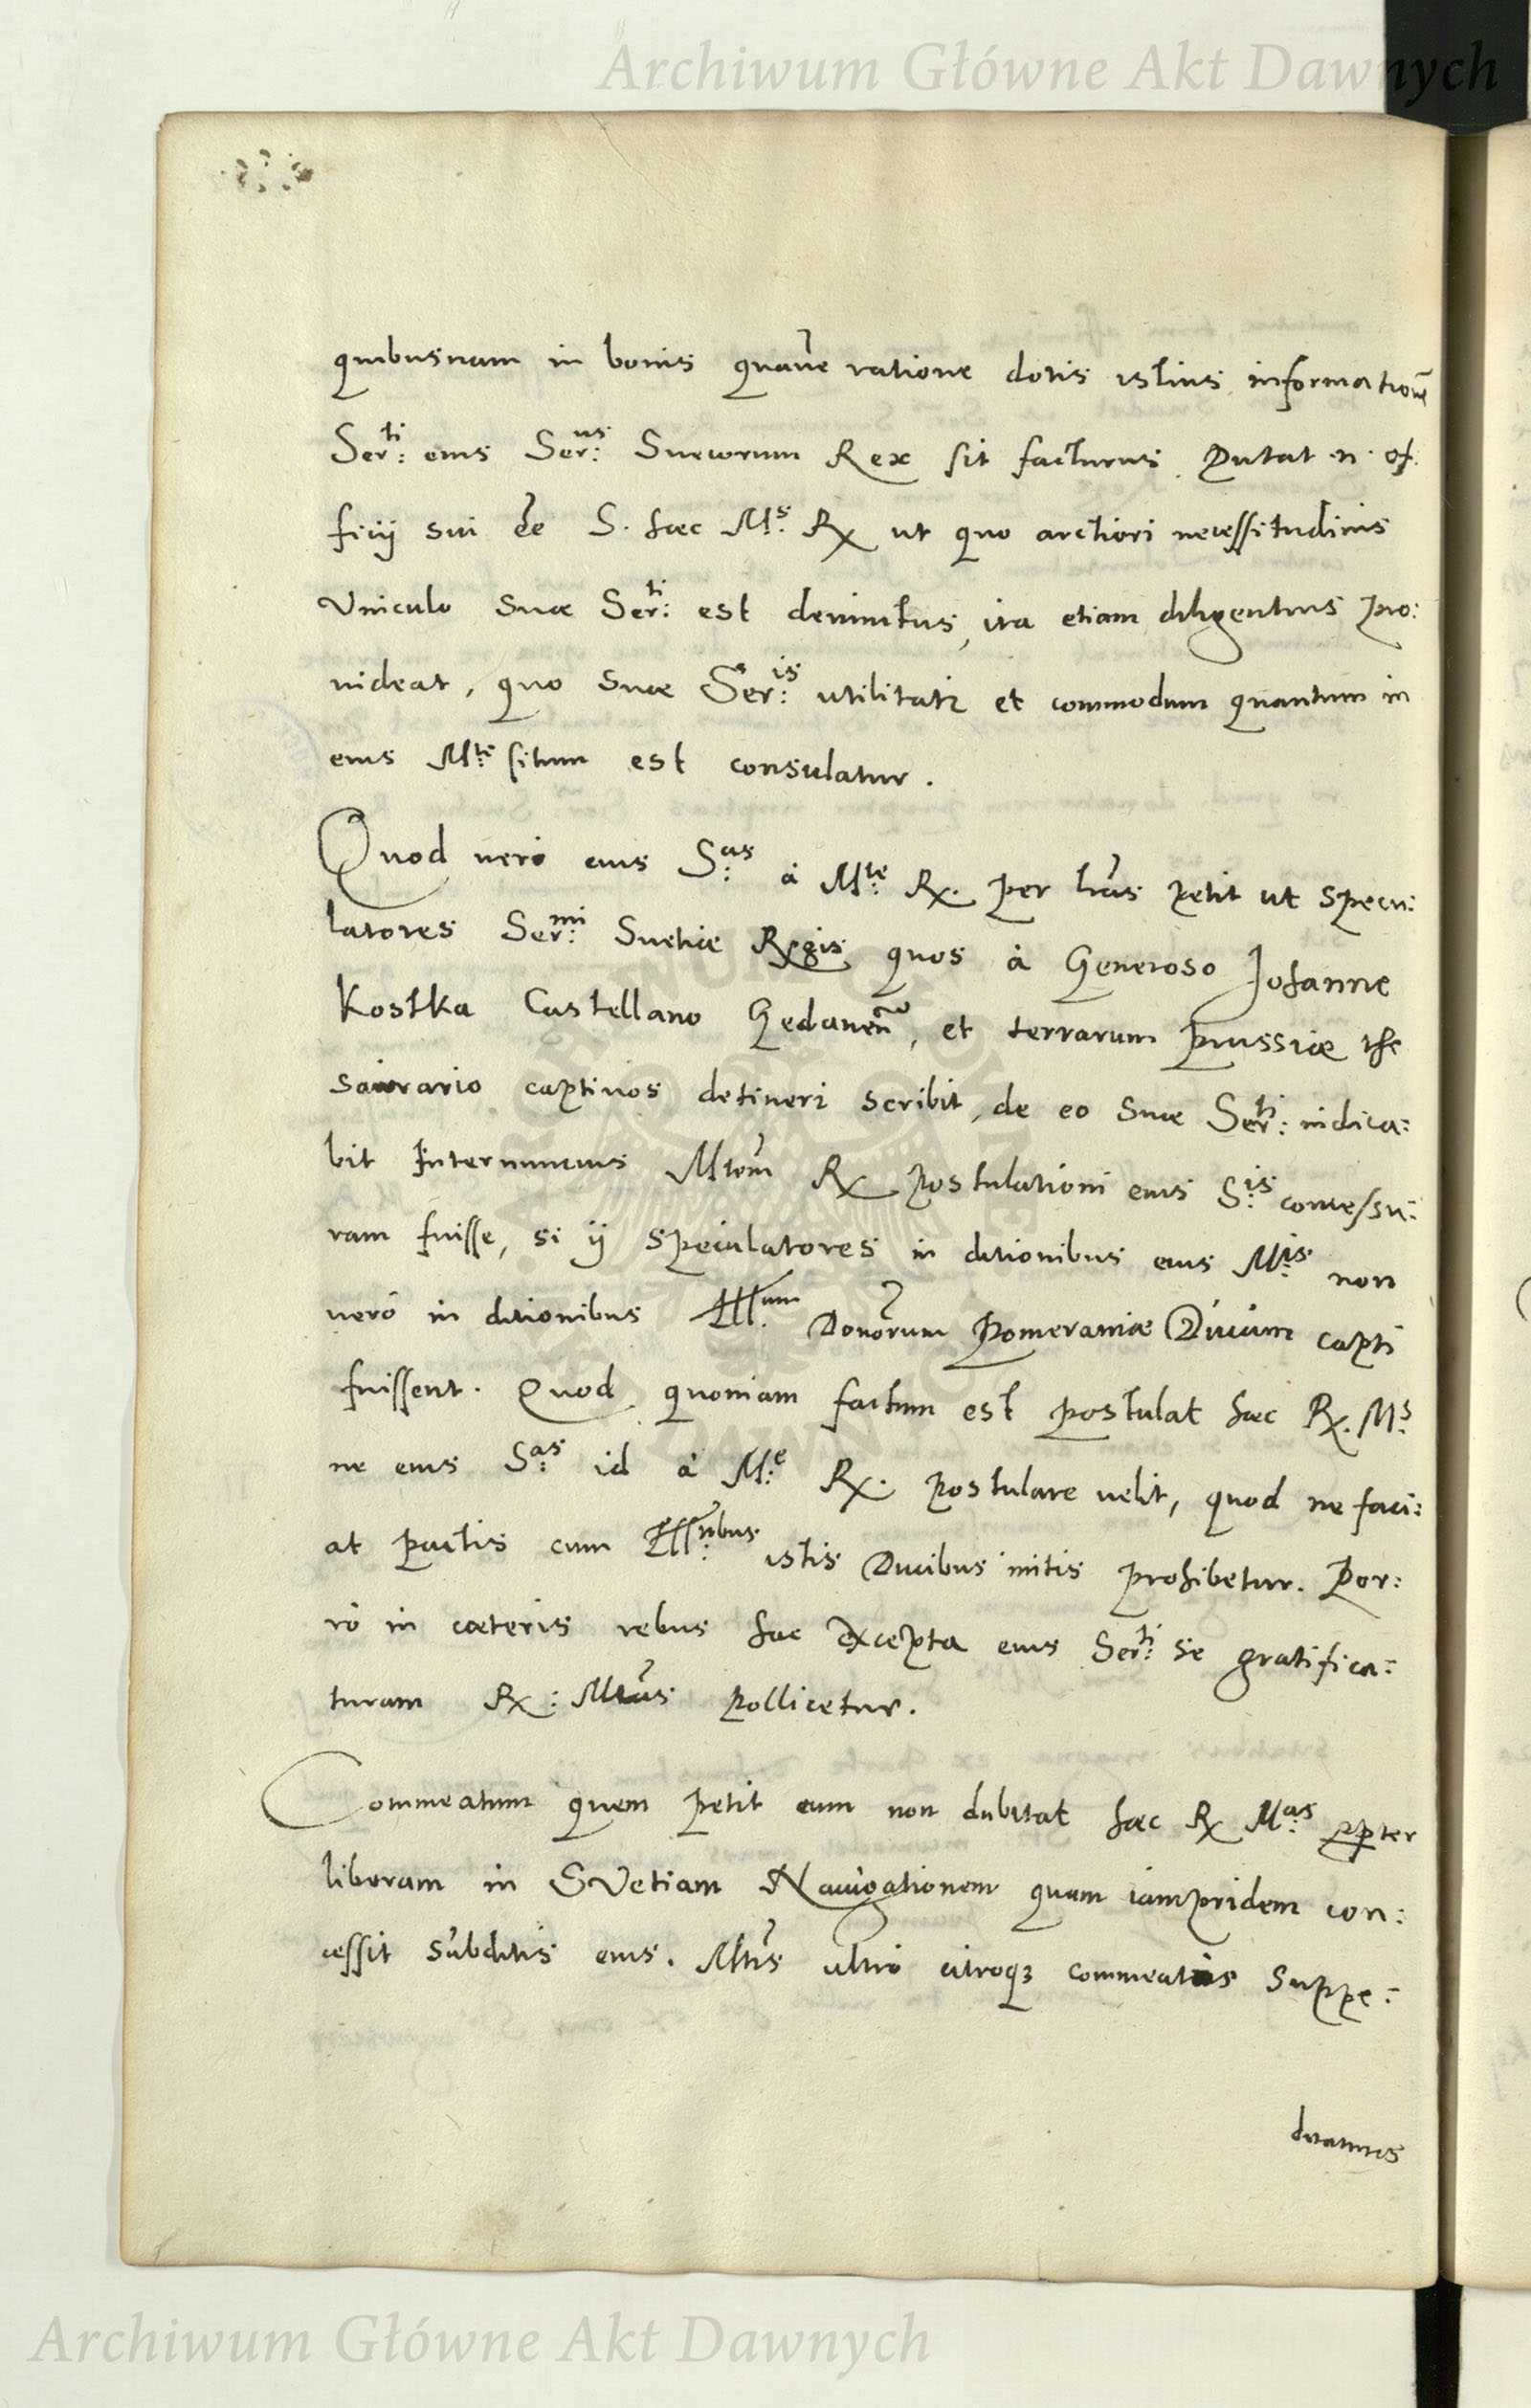 Archiwum Główne Akt Dawnych
quibusnam in bonis quave ratione dotis istius informationē
Ser:ti eius Ser:us Suecorum Rex sit facturus. Putat .n. of:
ficij sui eē S. haec M:s Rx ut quo arctiori necessitudinis
Vniculo suae Ser:ti est devinctus, ita etiam diligentius pro:
uideat, quo suae Ser:is utilitati et commodum quantum in
eius M:ti situm est consulatur.
Quod vero eius S:as à M:te Rx. per lrās petit ut specu:
latores Ser:mi Suetiae Regis quos à Generoso Johanne
Kostka Castellano Gedanen̄, et terrarum Prussiae the
saurario captivos detineri scribit, de eo suae Ser:ti indica:
bit Internuncius Mtem Rx postulationi eius S:is concessu:
ram fuisse, si ij speculatores in ditionibus eius M:is non
verò in ditionibus Ill:um Donorum Pomeraniae Ducum capti
fuissent. Quod quoniam factum est postulat haec Rx. M:s
ne eius S:as id à M:e Rx. postulare velit, quod ne faci:
at pactis cum Ill:ribus istis Ducibus initis prohibetur. Por:
rò in caeteris rebus hac excepta eius Ser:ti se gratifica:
turam Rx: Mtas pollicetur.
Commeatum quem petit eum non dubitat haec Rx M:as ppter
liberam in SVetiam Navigationem quam iampridem con:
cessit subditis eius. Mtis ultrò citroq3 commeatus suppe:
ditaturos
Archiwum Główne Akt Dawnych